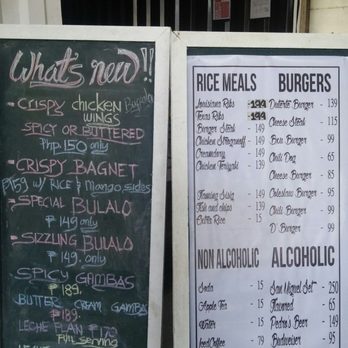 What's new!!
- CRISPY chicken
WINGS
SPICY OR BUTTERED
Php 150 only
- CRISPY BAGNET
₱159 w/ RICE & Mango, sides
- SPECIAL BULALO
₱149 only
- SIZZLING BULALO
₱149. only
SPICY GAMBAS
₱189.
BUTTER CREAM GAMBAS
₱189.
LECHE FLAN ₱179
FULL serving
RICE MEALS
Louisiana Ribs - 199
Texas Ribs - 199
Burger Steak - 149
Chicken Stroganoff - 149
- 149
Chicken Teriyaki - 139
Flaming - 149
Fish and chips - 139
Extra Rice - 15
BURGERS
- 139
Cheese Steak - 115
Burger - 99
Chili Dog - 65
Cheese Burger - 85
Coleslaw Burger - 95
Chili Burger - 99
D' Burger - 99
NON ALCOHOLIC
Soda - 25
Apple Tea - 15
Water - 15
Iced Coffee - 79
ALCOHOLIC
San Miguel Set - 250
Flavored - 65
Pedro's Beer - 149
Budweiser - 95